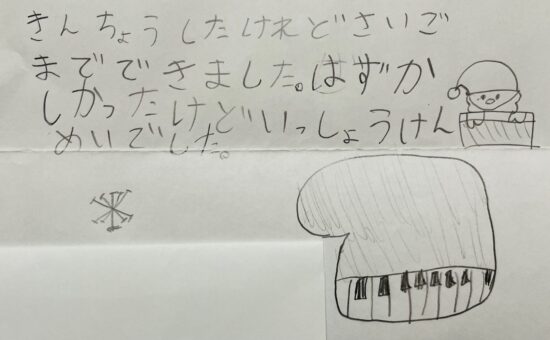 きんちょうしたけれどさいご
までできました。はずか
しかったけどいっしょうけん
めいでした。